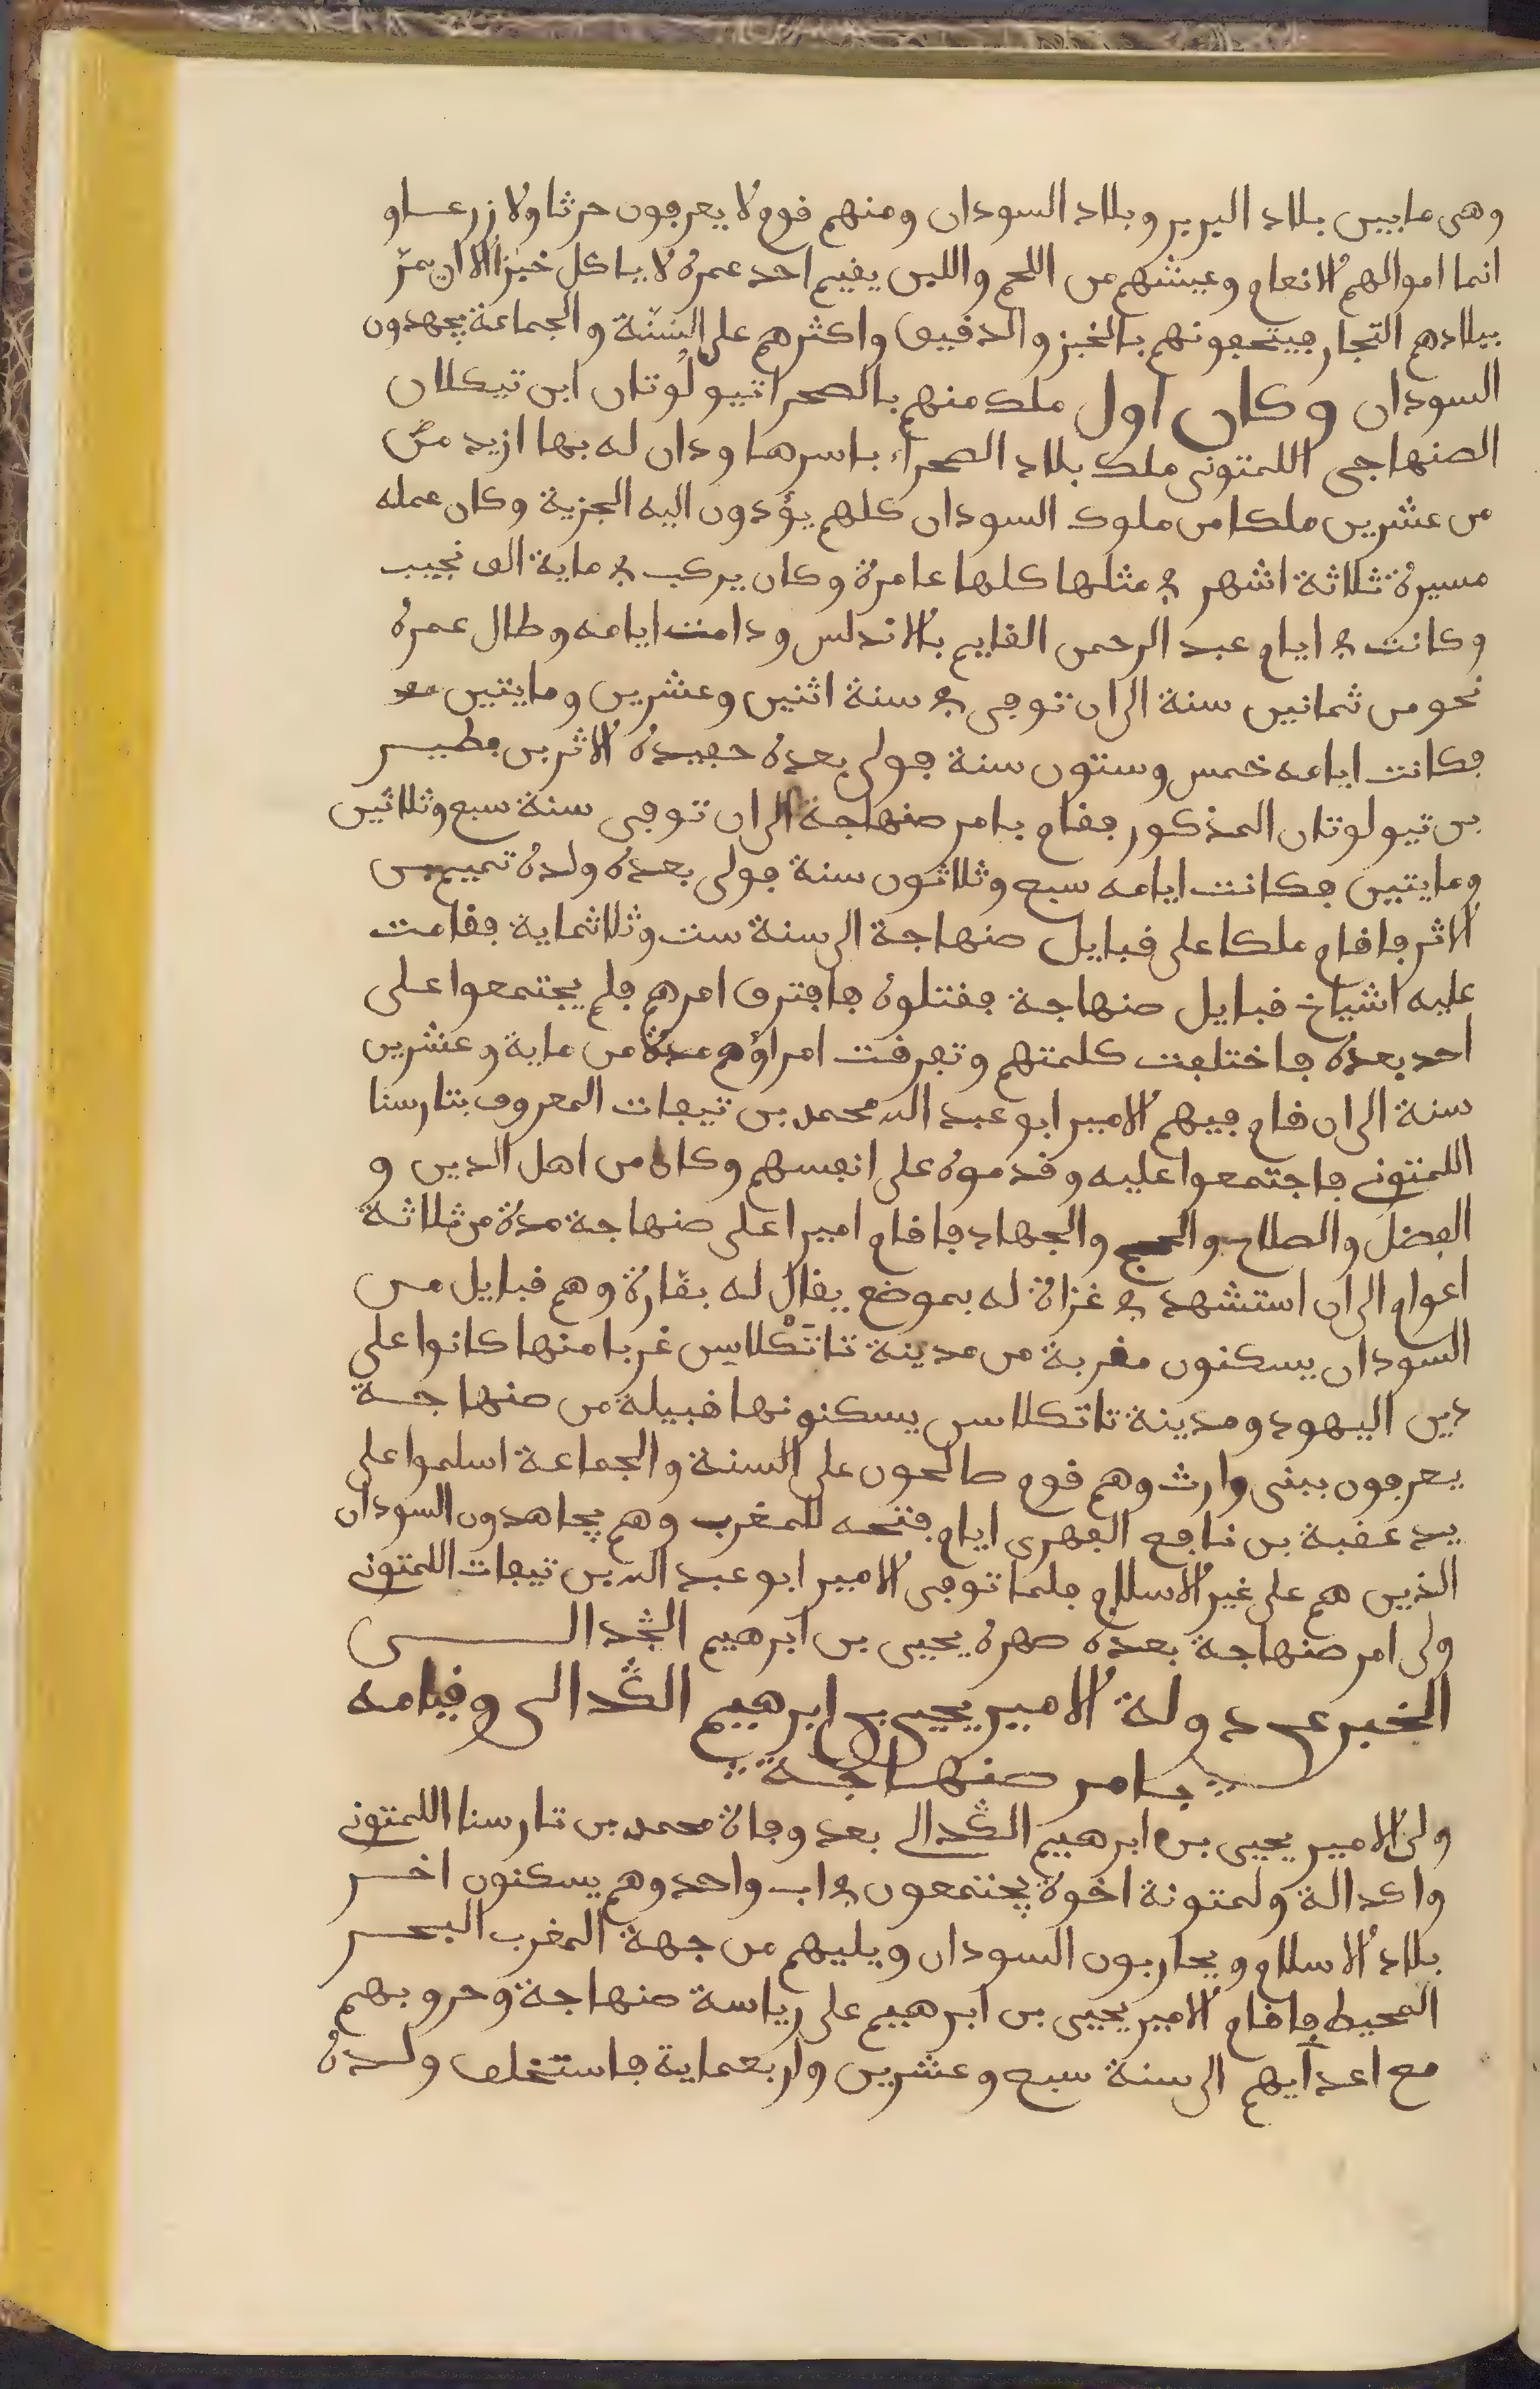 وهى ما بين بلاد البربر وبلاد السودان ومنهم قوم لا يعرفون حرثا ولا زرعا و
انما اموالهم الانعام وعيشهم من اللحم واللبن يقيم احد عمره لا ياكل خبزا الا ان يمرّ
ببلادهم التجار فيتحفونهم بالخبز والدقيق واكثرهم على السّنّة والجماعة يجهدون
السودان وكان اول ملك منهم بالصحرا تيولُوتان ابن تيكلان
الصنهاجى اللمتونى ملك بلاد الصحرآء باسرها ودان له بها ازيد من
من عشرين ملكا من ملوك السودان كلهم يؤدون اليه الجزية وكان عمله
مسيرة ثلاثة اشهر في مثلها كلها عامرة وكان يركب في ماية الف نجيب
وكانت في ايام عبد الرحمن القايم بالاندلس ودامت ايامه وطال عمره
نحو من ثمانين سنة الى ان توفى في سنة اثنين وعشرين ومايتين
فكانت ايامه خمس وستون سنة فولى بعده حفيده الاثر بن فطير
بن تيولوتان المذكور فقام بامر صنهاجة الى ان توفى سنة سبع وثلاثين
ومايتين فكانت ايامه سبع وثلاثون سنة فولى بعده ولده تميم بن
الاثر فاقام ملكا على قبايل صنهاجة الى سنة ست وثلاثماية فقامت
عليه اشياخ قبايل صنهاجة فقتلوه فافترق امرهم فلم يجتمعوا على
احد بعده فاختلفت كلمتهم وتفرقت امراؤهم مدة من ماية وعشرين
سنة الى ان قام فيهم الامير ابو عبد الله محمد بن تيفات المعروف بتارسنا
اللمتونى فاجتمعوا عليه وقدموه على انفسهم وكان من اهل الدين و
الفضل والصلاح والحج والجهاد فاقام اميرا على صنهاجة مدة من ثلاثة
اعوام الى ان استشهد في غزاة له بموضع يقال له بقّارة وهم قبايل من
السودان يسكنون مقربة من مدينة تاتَكْلاسِن غربا منها كانوا على
دين اليهود ومدينة تاتكلاسن يسكنونها قبيلة من صنهاجة
يعرفون ببنى وارث وهم قوم صالحون على السنة والجماعة اسلموا على
يد عقبة بن نافع الفهرى ايام فتحه للمغرب وهم يجاهدون السودان
الذين هم على غير الاسلام فلما توفى الامير ابو عبد الله بن تيفات اللمتونى
ولى امر صنهاجة بعده صهره يحيى بن ابرهيم الڭدالى
الخبر عن دولة الامير يحيى بن ابرهيم الڭدالى وقيامه
بامر صنهاجة
ولى الامير يحيى بن ابرهيم الڭدالى بعد وفاة محمد بن تارسنا اللمتونى
واكدالة ولمتونة اخوة يجتمعون في اب واحد وهم يسكنون اخر
بلاد الاسلام ويحاربون السودان ويليهم من جهة المغرب البحر
المحيط فاقام الامير يحيى بن ابرهيم على رياسة صنهاجة وحروبهم
مع اعدآيهم الى سنة سبع وعشرين واربعماية فاستخلف ولده